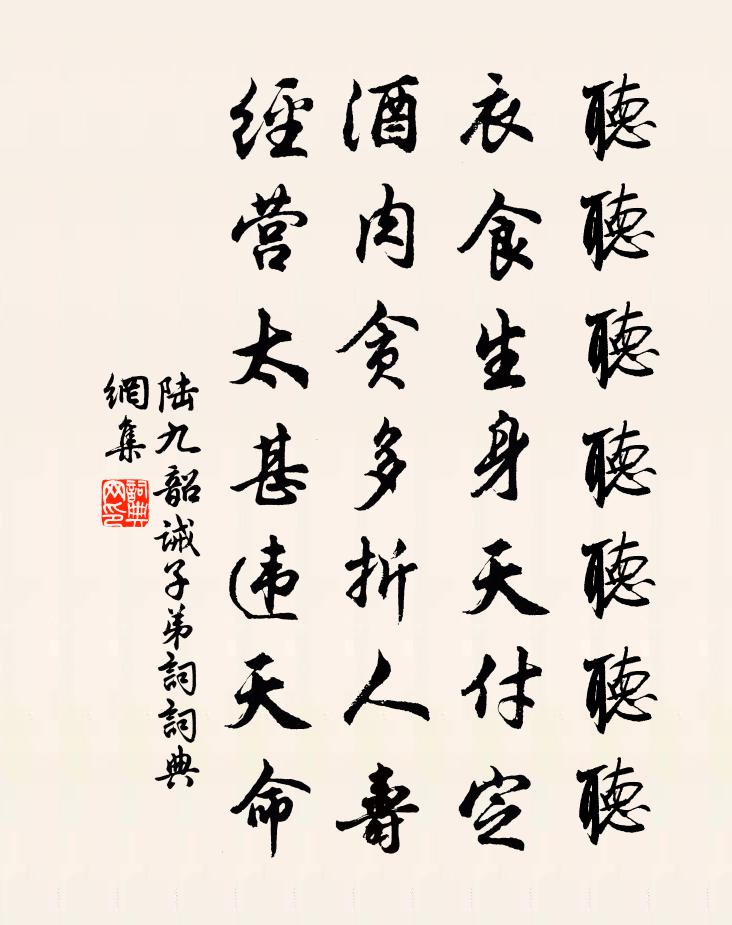 聽聽聽聽聽聽聽
衣食生身天付定
酒肉贪多折人寿
經营太甚违天命
陆九韶诫子弟詞詞典
網集
詞典
网印